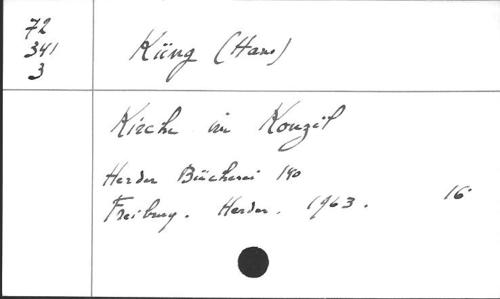 72
341
3
Küng (Hans)
Kirche im Konzil
Herder Bücherei 140
Freiburg. Herder. 1963. 16°